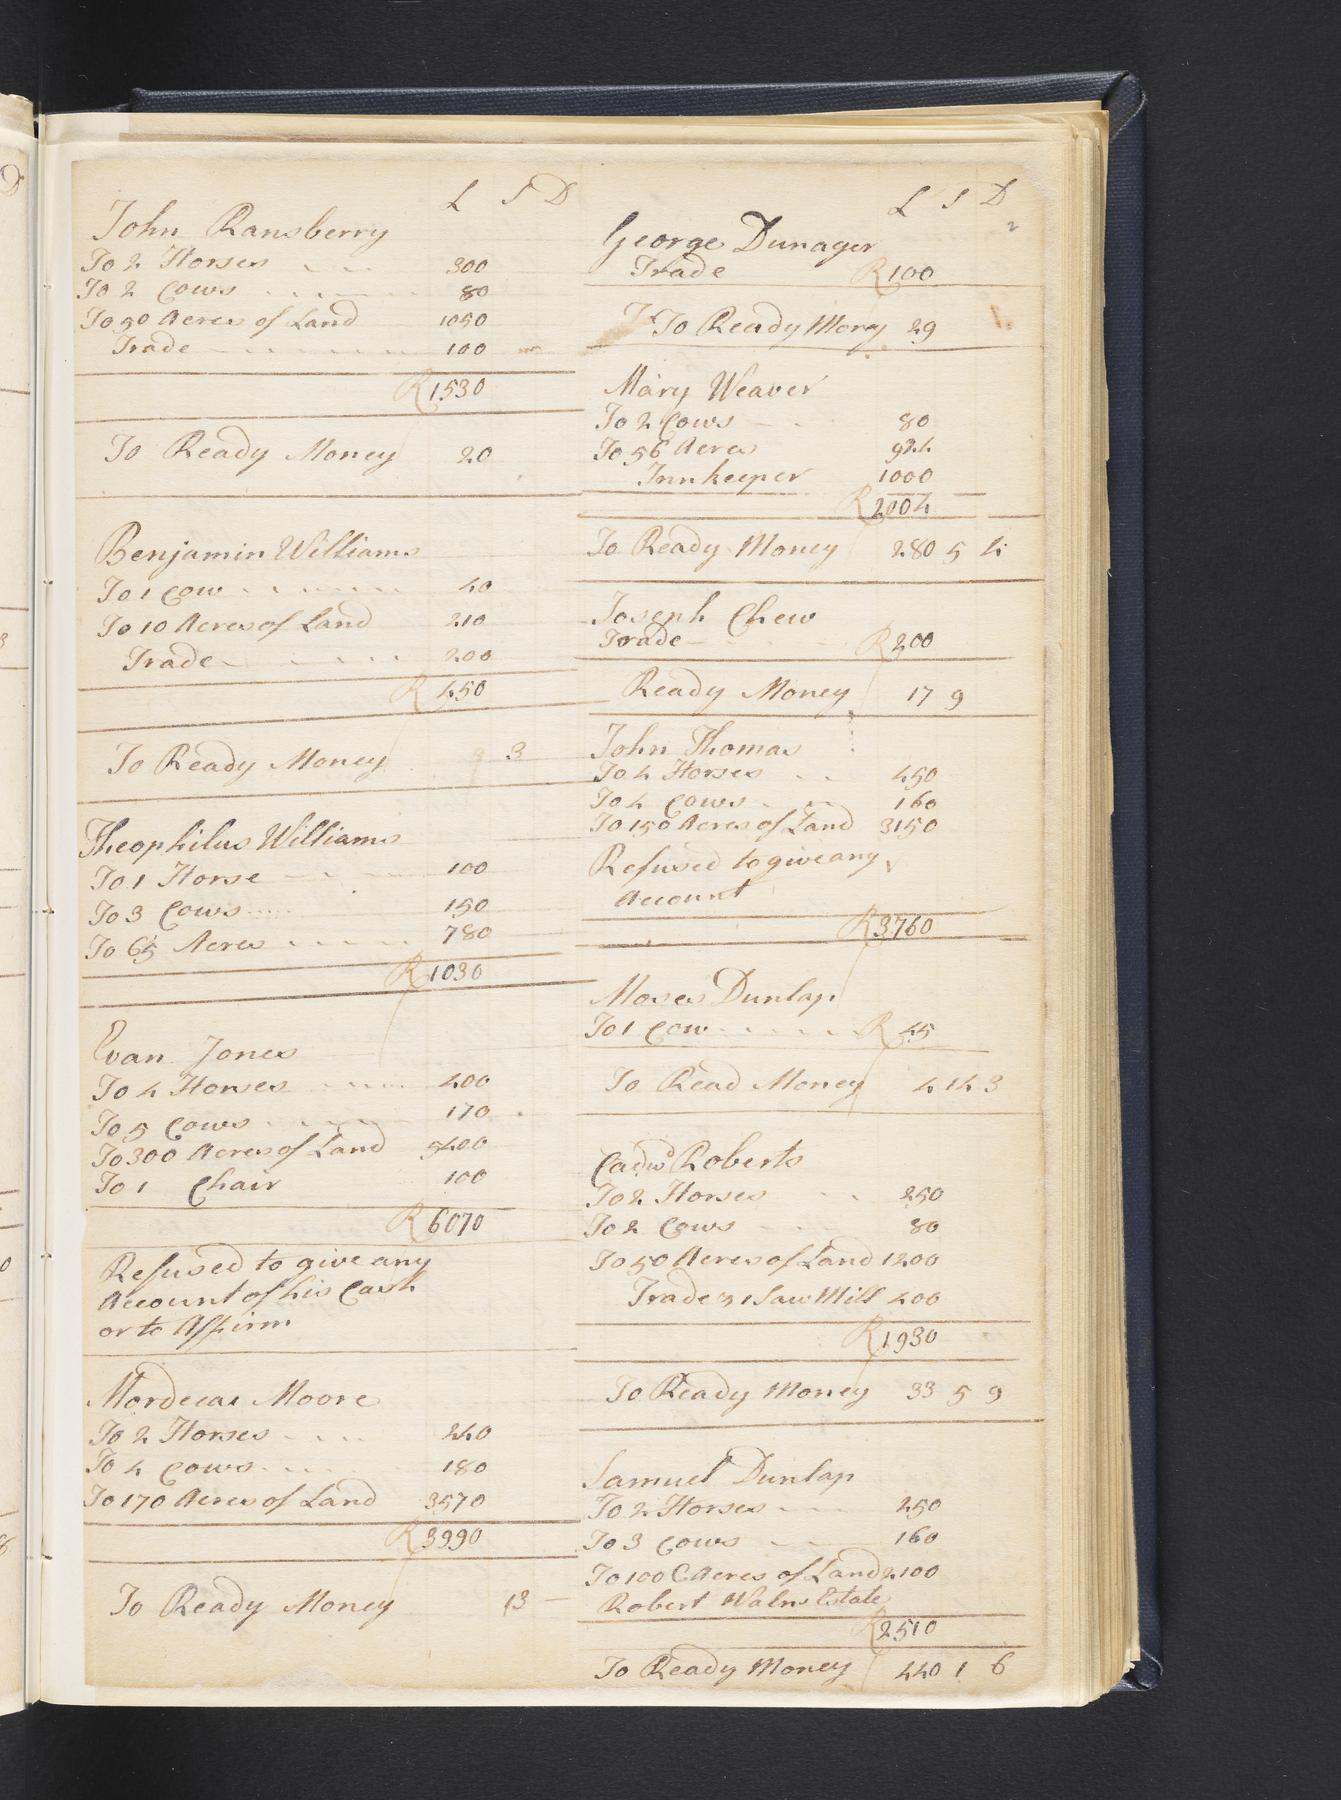 L S D
John Ransberry
To 2 Horses 300
To 2 Cows 80
To 50 Acres of Land 1050
Trade 100
R 1530
To Ready Money 20
Benjamin Williams
To 1 Cow 40
To 10 Acres of Land 210
Trade 200
R 450
To Ready Money 9 3
Theophilus Williams
To 1 Horse 100
To 3 Cows 150
To 65 Acres 780
R 1030
Evan Jones
To 4 Horses 400
To 5 Cows 170
To 300 Acres of Land 5400
To 1 Chair 100
R 6070
Refused to give any
Account of his Cash
or to Affirm
Mordecai Moore
To 2 Horses 240
To 4 Cows 180
To 170 Acres of Land 3570
R 3990
To Ready Money 13
L S D
2
George Dunager
Trade R 100
To Ready Mony 29
Mary Weaver
To 2 Cows 80
To 56 Acres 924
Innkeeper 1000
R 2004
To Ready Money 280 5 4
Joseph Chew
Trade R 200
Ready Money 17 9
John Thomas
To 4 Horses 450
To 4 Cows 160
To 150 Acres of Land 3150
Refused to give any
Account
R 3760
Moses Dunlap
To 1 Cow R 45
To Read Money 4 14 3
Cadwd Roberts
To 2 Horses 250
To 2 Cows 80
To 50 Acres of Land 1200
Trade 1 Saw Mill 400
R 1930
To Ready Money 33 5 9
Samuel Dunlap
To 2 Horses 250
To 3 Cows 160
To 100 Acres of Land 2100
Robert Walns Estate
R 2510
To Ready Money 440 1 6